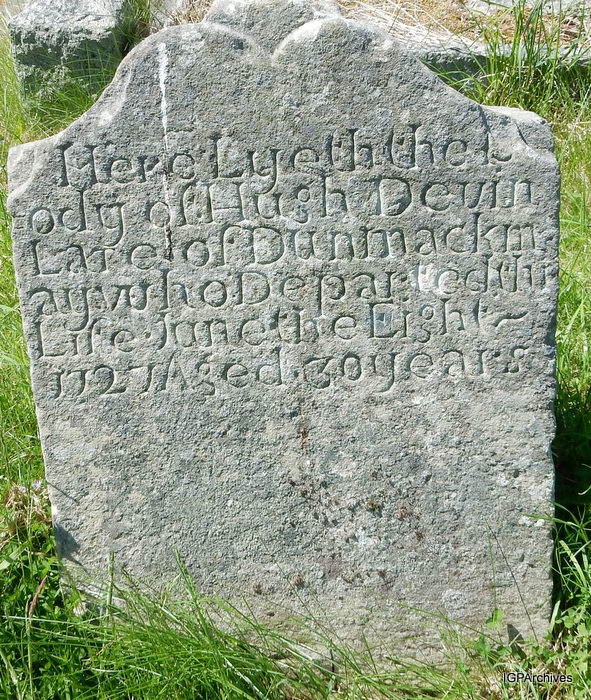 Here Lyeth the b
ody of Hugh Devin
Late of Dunmackm
ay who Departed thi
Life June the Eight
1727 Aged 30 years
IGPArchives